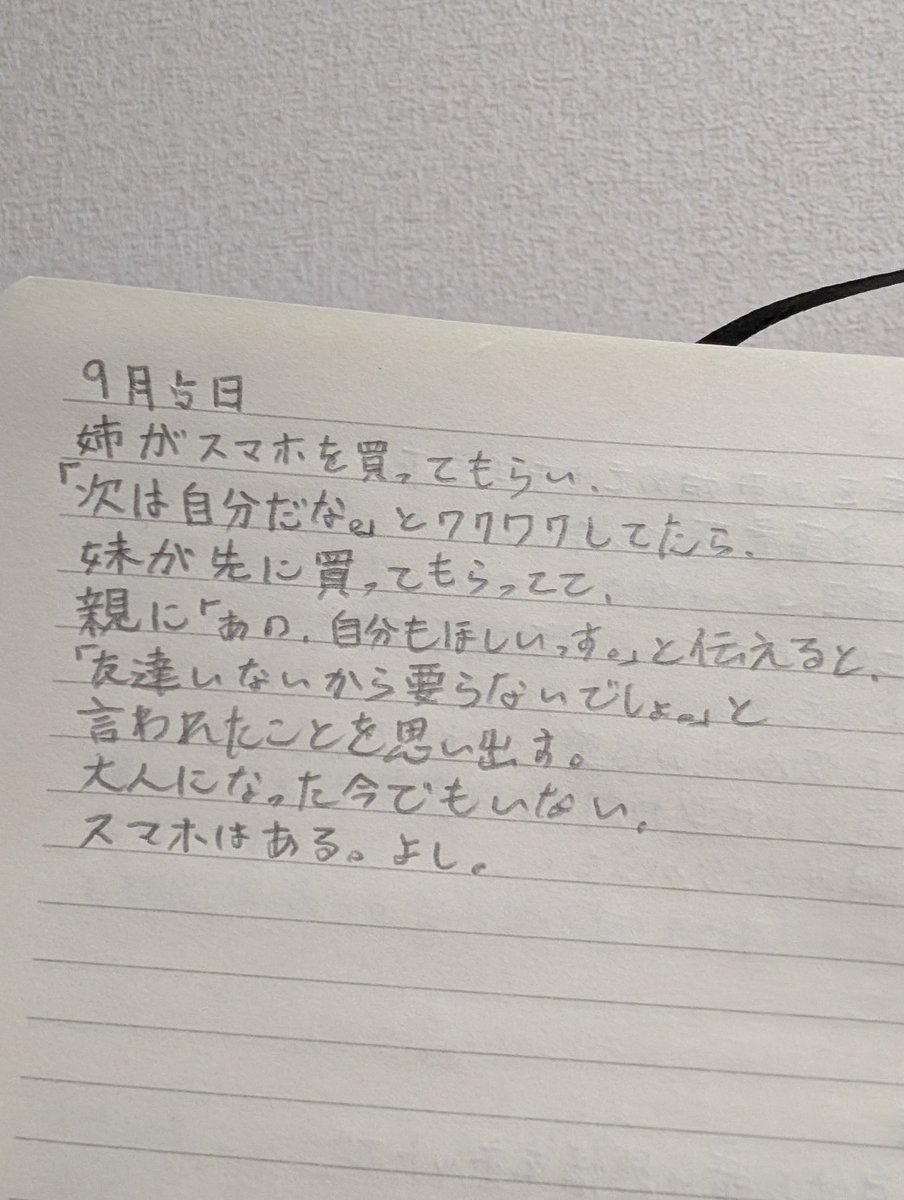 9月5日
姉がスマホを買ってもらい、
「次は自分だな。」とワクワクしてたら、
妹が先に買ってもらってて、
親に「あの、自分もほしいっす。」と伝えると、
「友達いないから要らないでしょ。」と
言われたことを思い出す。
大人になった今でもいない。
スマホはある。よし。